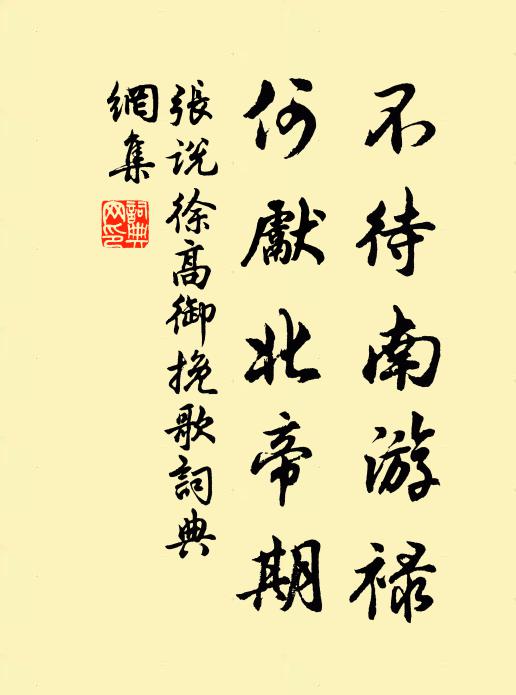 不待南游禄
何獻北帝期
張说徐高御挽歌詞典
網集
詞典網印